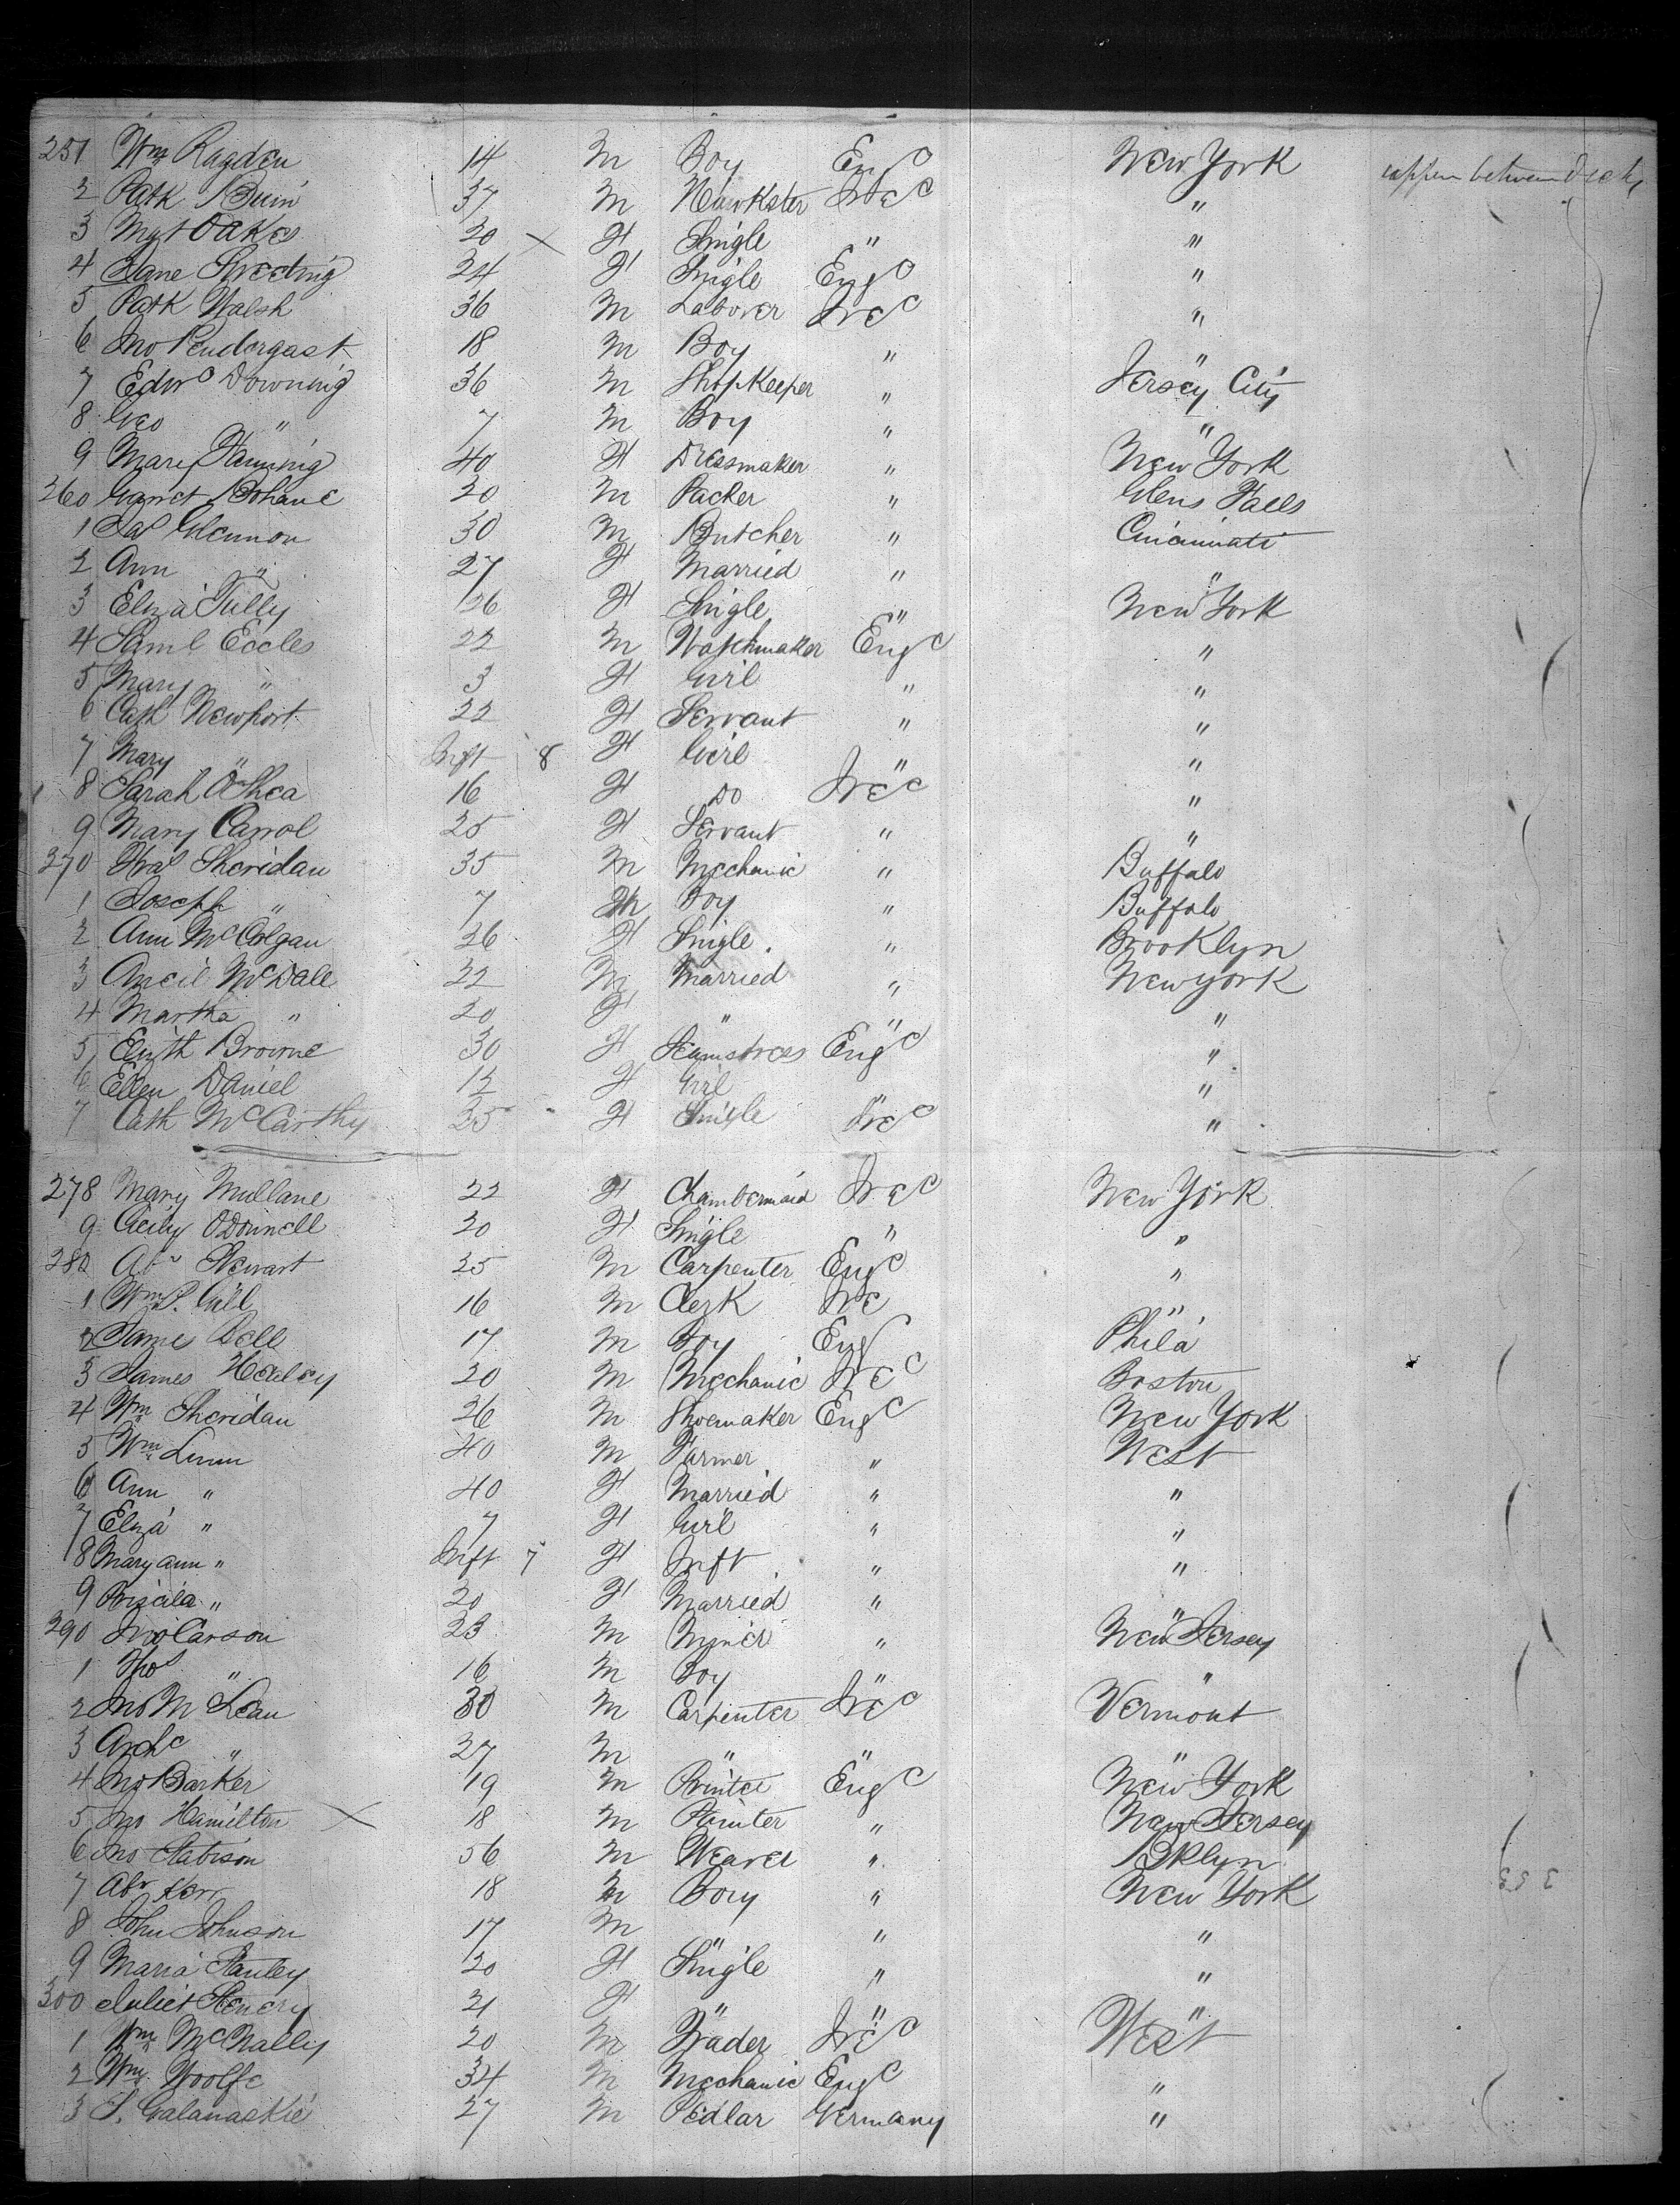 251 Wm Ragden 14 M Boy Engd New York upper between decks
2 Patk Quin 37 M Hawkster Ireld "
3 Mgt Oakes 20 X F Single " "
4 Jane Sweeting 24 F Single Engd "
5 Patk Walsh 36 M Laborer Ireld "
6 Jno Pendergast 18 M Boy " "
7 Edwd Downing 36 M Shopkeeper " Jersey City
8 Geo " 7 M Boy " "
9 Mary Fanning 40 F Dressmaker " New York
260 Garret Bohane 20 M Packer " Glens Falls
1 Jas Glennon 30 M Butcher " Cincinnati
2 Ann " 27 F Married " "
3 Eliza Tully 26 F Single " New York
4 Saml Eccles 22 M Watchmaker Engd "
5 Mary " 3 F Girl " "
6 Cath Newport 22 F Servant " "
7 Mary " Inft 8 F Girl " "
8 Sarah O'Shea 16 F Do Ireld "
9 Mary Carrol 25 F Servant " "
270 Fras Sheridan 35 M Mechanic " Buffalo
1 Joseph " 7 M Boy " Buffalo
2 Ann McColgan 26 F Single " Brooklyn
3 Aneil McDall 22 M Married " New York
4 Martha " 20 F " " "
5 Elizth Browne 30 F Seamstress Engd "
6 Ellen Daniel 12 F Girl " "
7 Cath McCarthy 25 F Single Ireld "
278 Mary Mullane 22 F Chambermaid Ireld New York
9 Cecily ODonnell 20 F Single " "
280 Abm Stewart 25 M Carpenter Engd "
1 Wm P. Gill 16 M Clerk Ire "
2 Jame Bell 17 M Boy Eng Phila
3 James Healey 20 M Mechanic Ireld Boston
4 Wm Sheridan 26 M Shoemaker Engd New York
5 Wm Lunn 40 M Farmer " West
6 Ann " 40 F Married " "
7 Eliza " 7 F Girl " "
8 Mary ann " Inft 7 F Inft " "
9 Priscila " 20 F Married " "
290 Jno Carson 23 M Miner " New Jersey
1 Thos " 16 M Boy " "
2 Jno McLean 30 M Carpenter Ireld Vermont
3 Archd " 27 M " " "
4 Jno Barker 19 M Printer Engd New York
5 Jno Hamilton X 18 M Painter " New Jersey
6 Jno 56 M Weaver " Bklyn
7 Abr Kerr 18 M Boy " New York
8 John Johnson 17 M " " "
9 Maria Stanley 20 F Single " "
300 Juliet 21 F " " "
1 Wm McNally 20 M Trader Ireld West
2 Wm Woolfe 34 M Mechanic Engd "
3 S. Galanaskie 27 M Pedlar Germany "